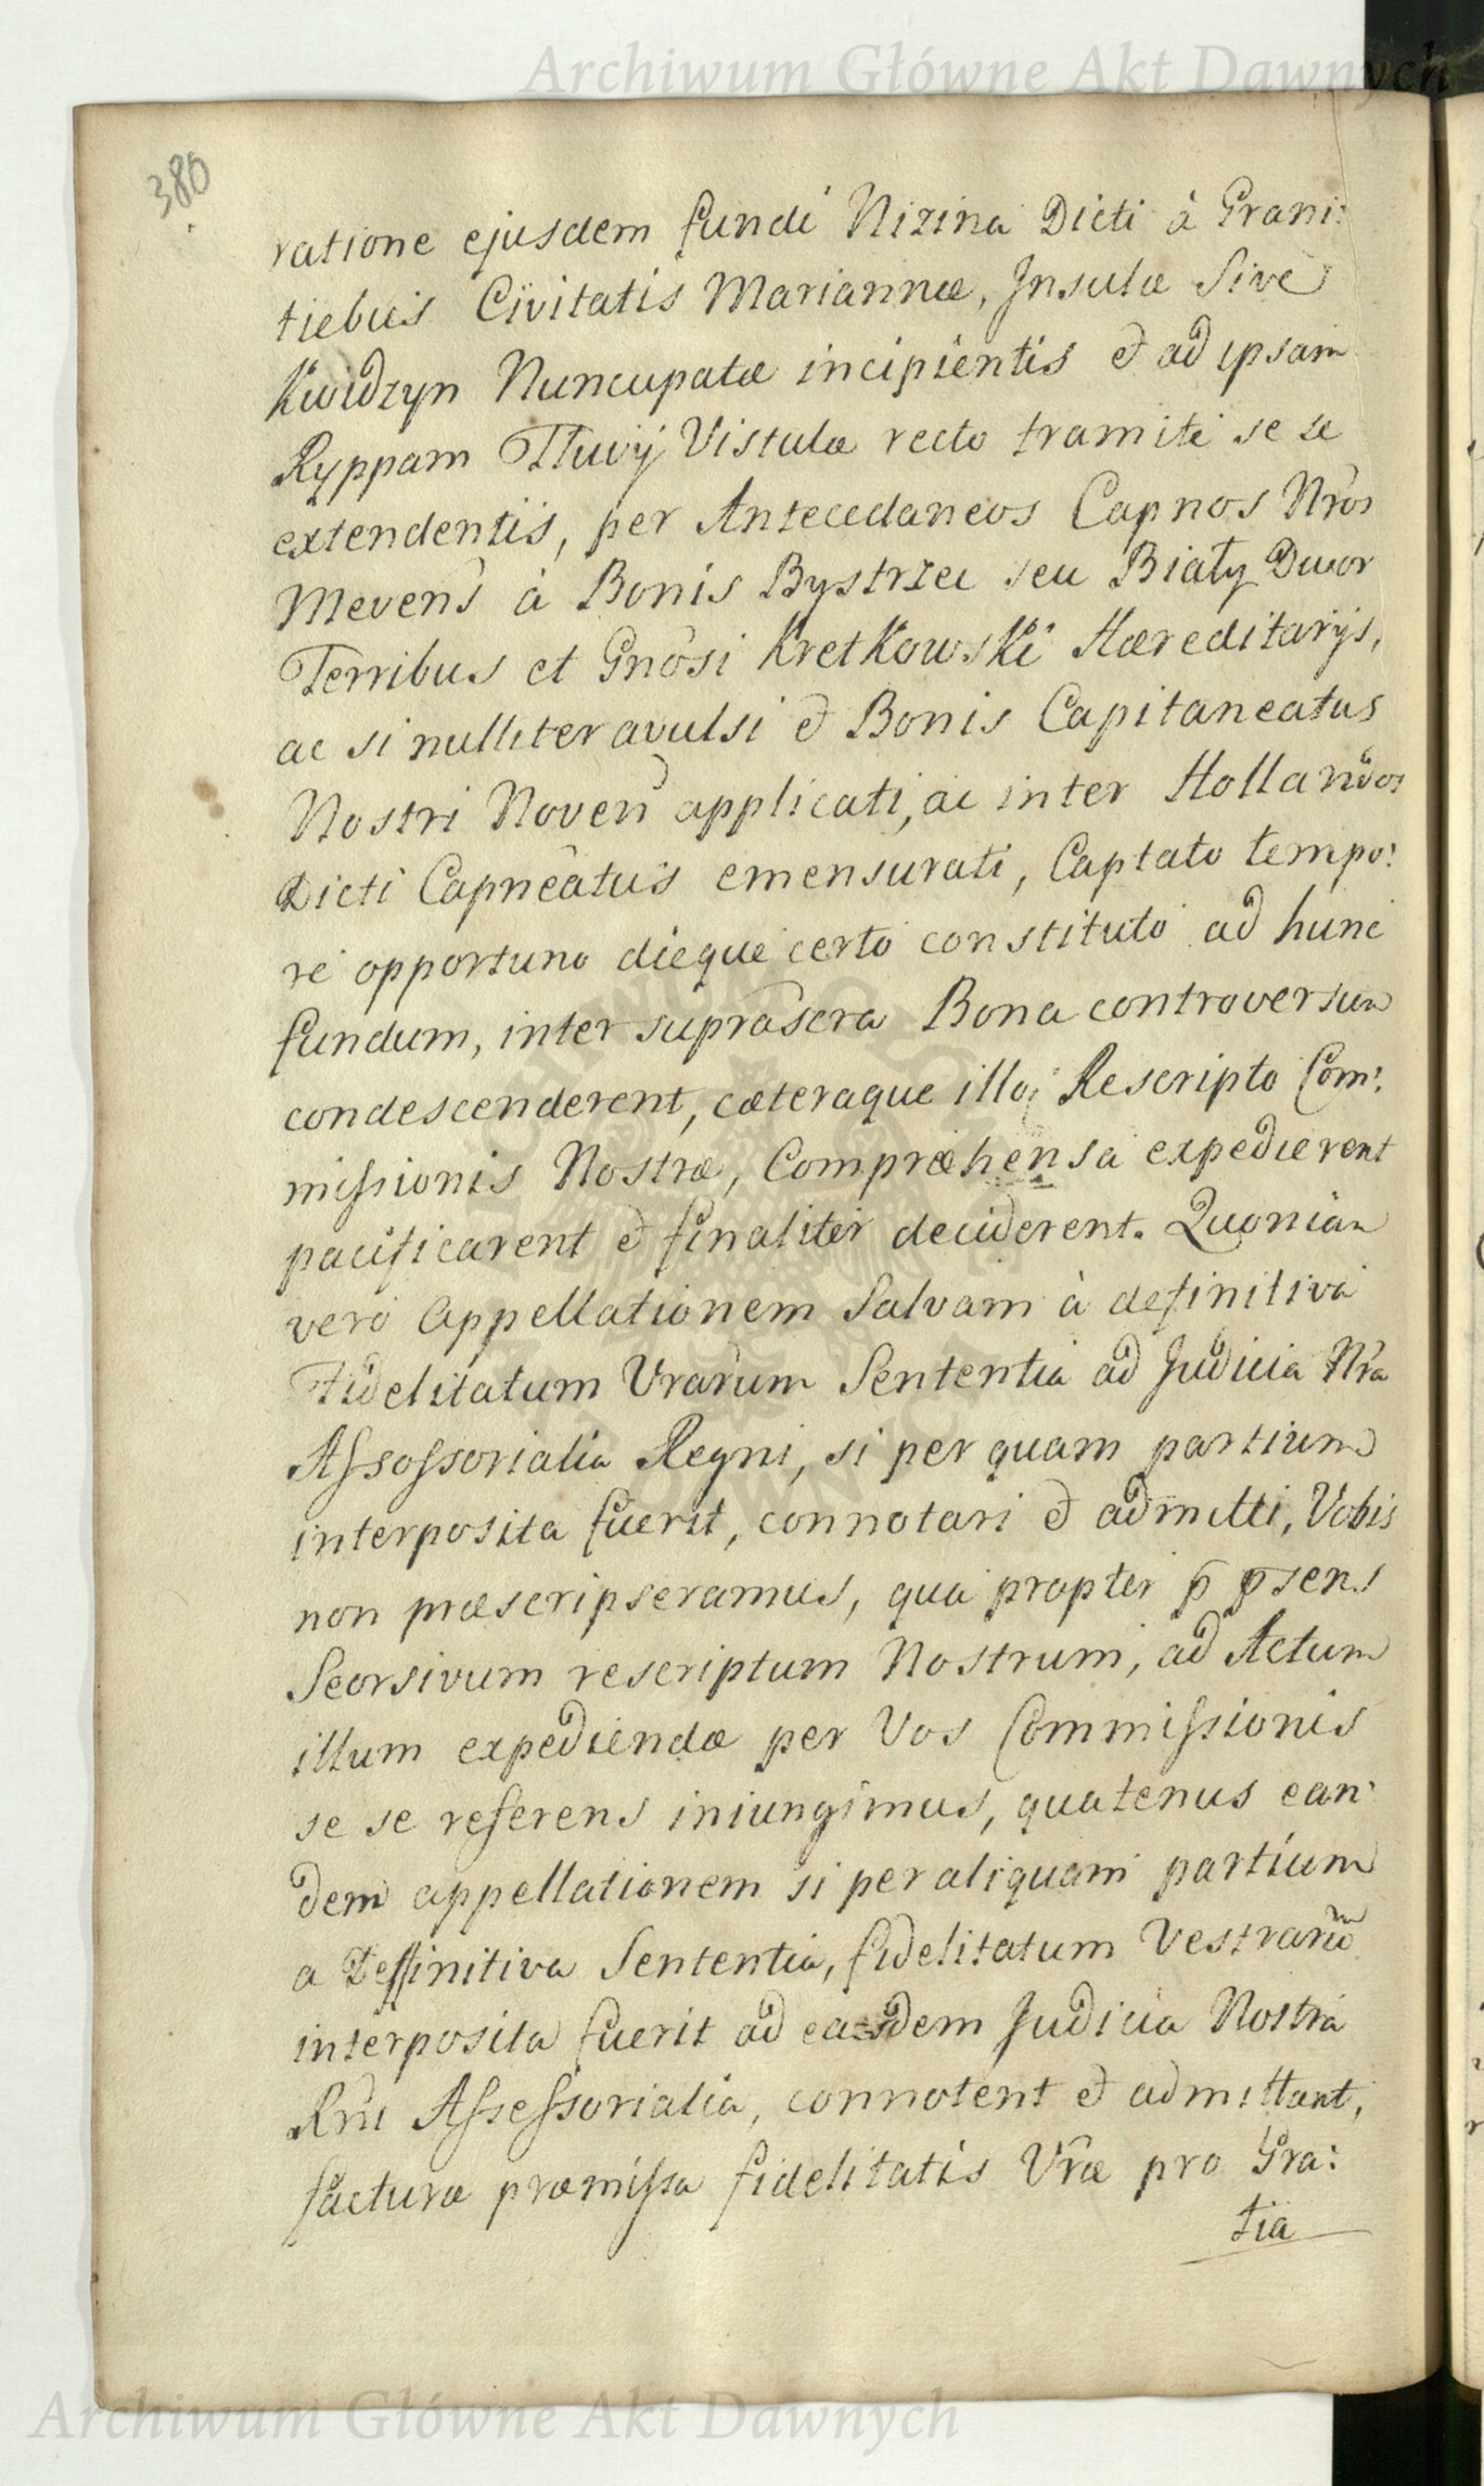 Archiwum Główne Akt Dawnych
380
ratione ejusdem fundi Nizina Dicti à Grani:
tiebus Civitatis Mariannæ, Insulæ Sive
Kwidzyn Nuncupatæ incipientis et ad ipsam
Ryppam Fluvij Vistulæ recto tramite se se
extendentis, per Antecedaneos Capnos Nros
Meven̄ à Bonis Bystrzec seu Biały Dwor
Terribus et Gnosi Kretkowski Hæreditarijs,
ac si nulliter avulsi et Bonis Capitaneatus
Nostri Noven̄ applicati, ac inter Hollandos
Dicti Capneatus emensurati, Captato tempo:
re opportuno dieque certo constituto ad hunc
fundum, inter suprascra Bona controversum
condescenderent, cæteraque illo, Rescripto Com:
missionis Nostræ, Compræhensa expedierent
pacificarent et finaliter deciderent. Quoniam
vero Appellationem Salvam à definitiva
Fidelitatum Vrarum Sententia ad Judicia Nra
Assossorialia Regni, si per quam partium
interposita fuerit, connotari et admitti, Vobis
non præscripseramus, qua propter p̄ p̄sens
Seorsivum rescriptum Nostrum, ad Actum
illum expediendæ per Vos Commissionis
se se referens iniungimus, quatenus ean:
dem appellationem si per aliquam partium
a Deffinitiva Sententia, fidelitatum Vestrarū
interposita fuerit ad eadem Judicia Nostra
Rni Assessorialia, connotent et admittant,
facturæ præmissa fidelitatis Vræ pro Gra:
tia
Archiwum Główne Akt Dawnych